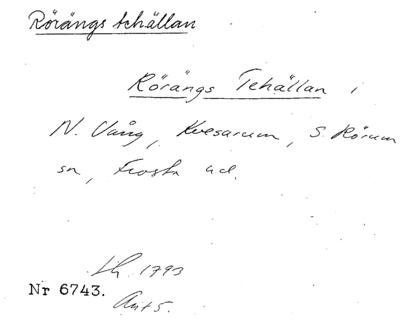 Rörängs tehällan
Rörängs Tehällan i
N. Vång, Kvesarum, S. Rörum
sn, Frosta hd.
Lh. 1793
Nr 6743.
Ant 5.